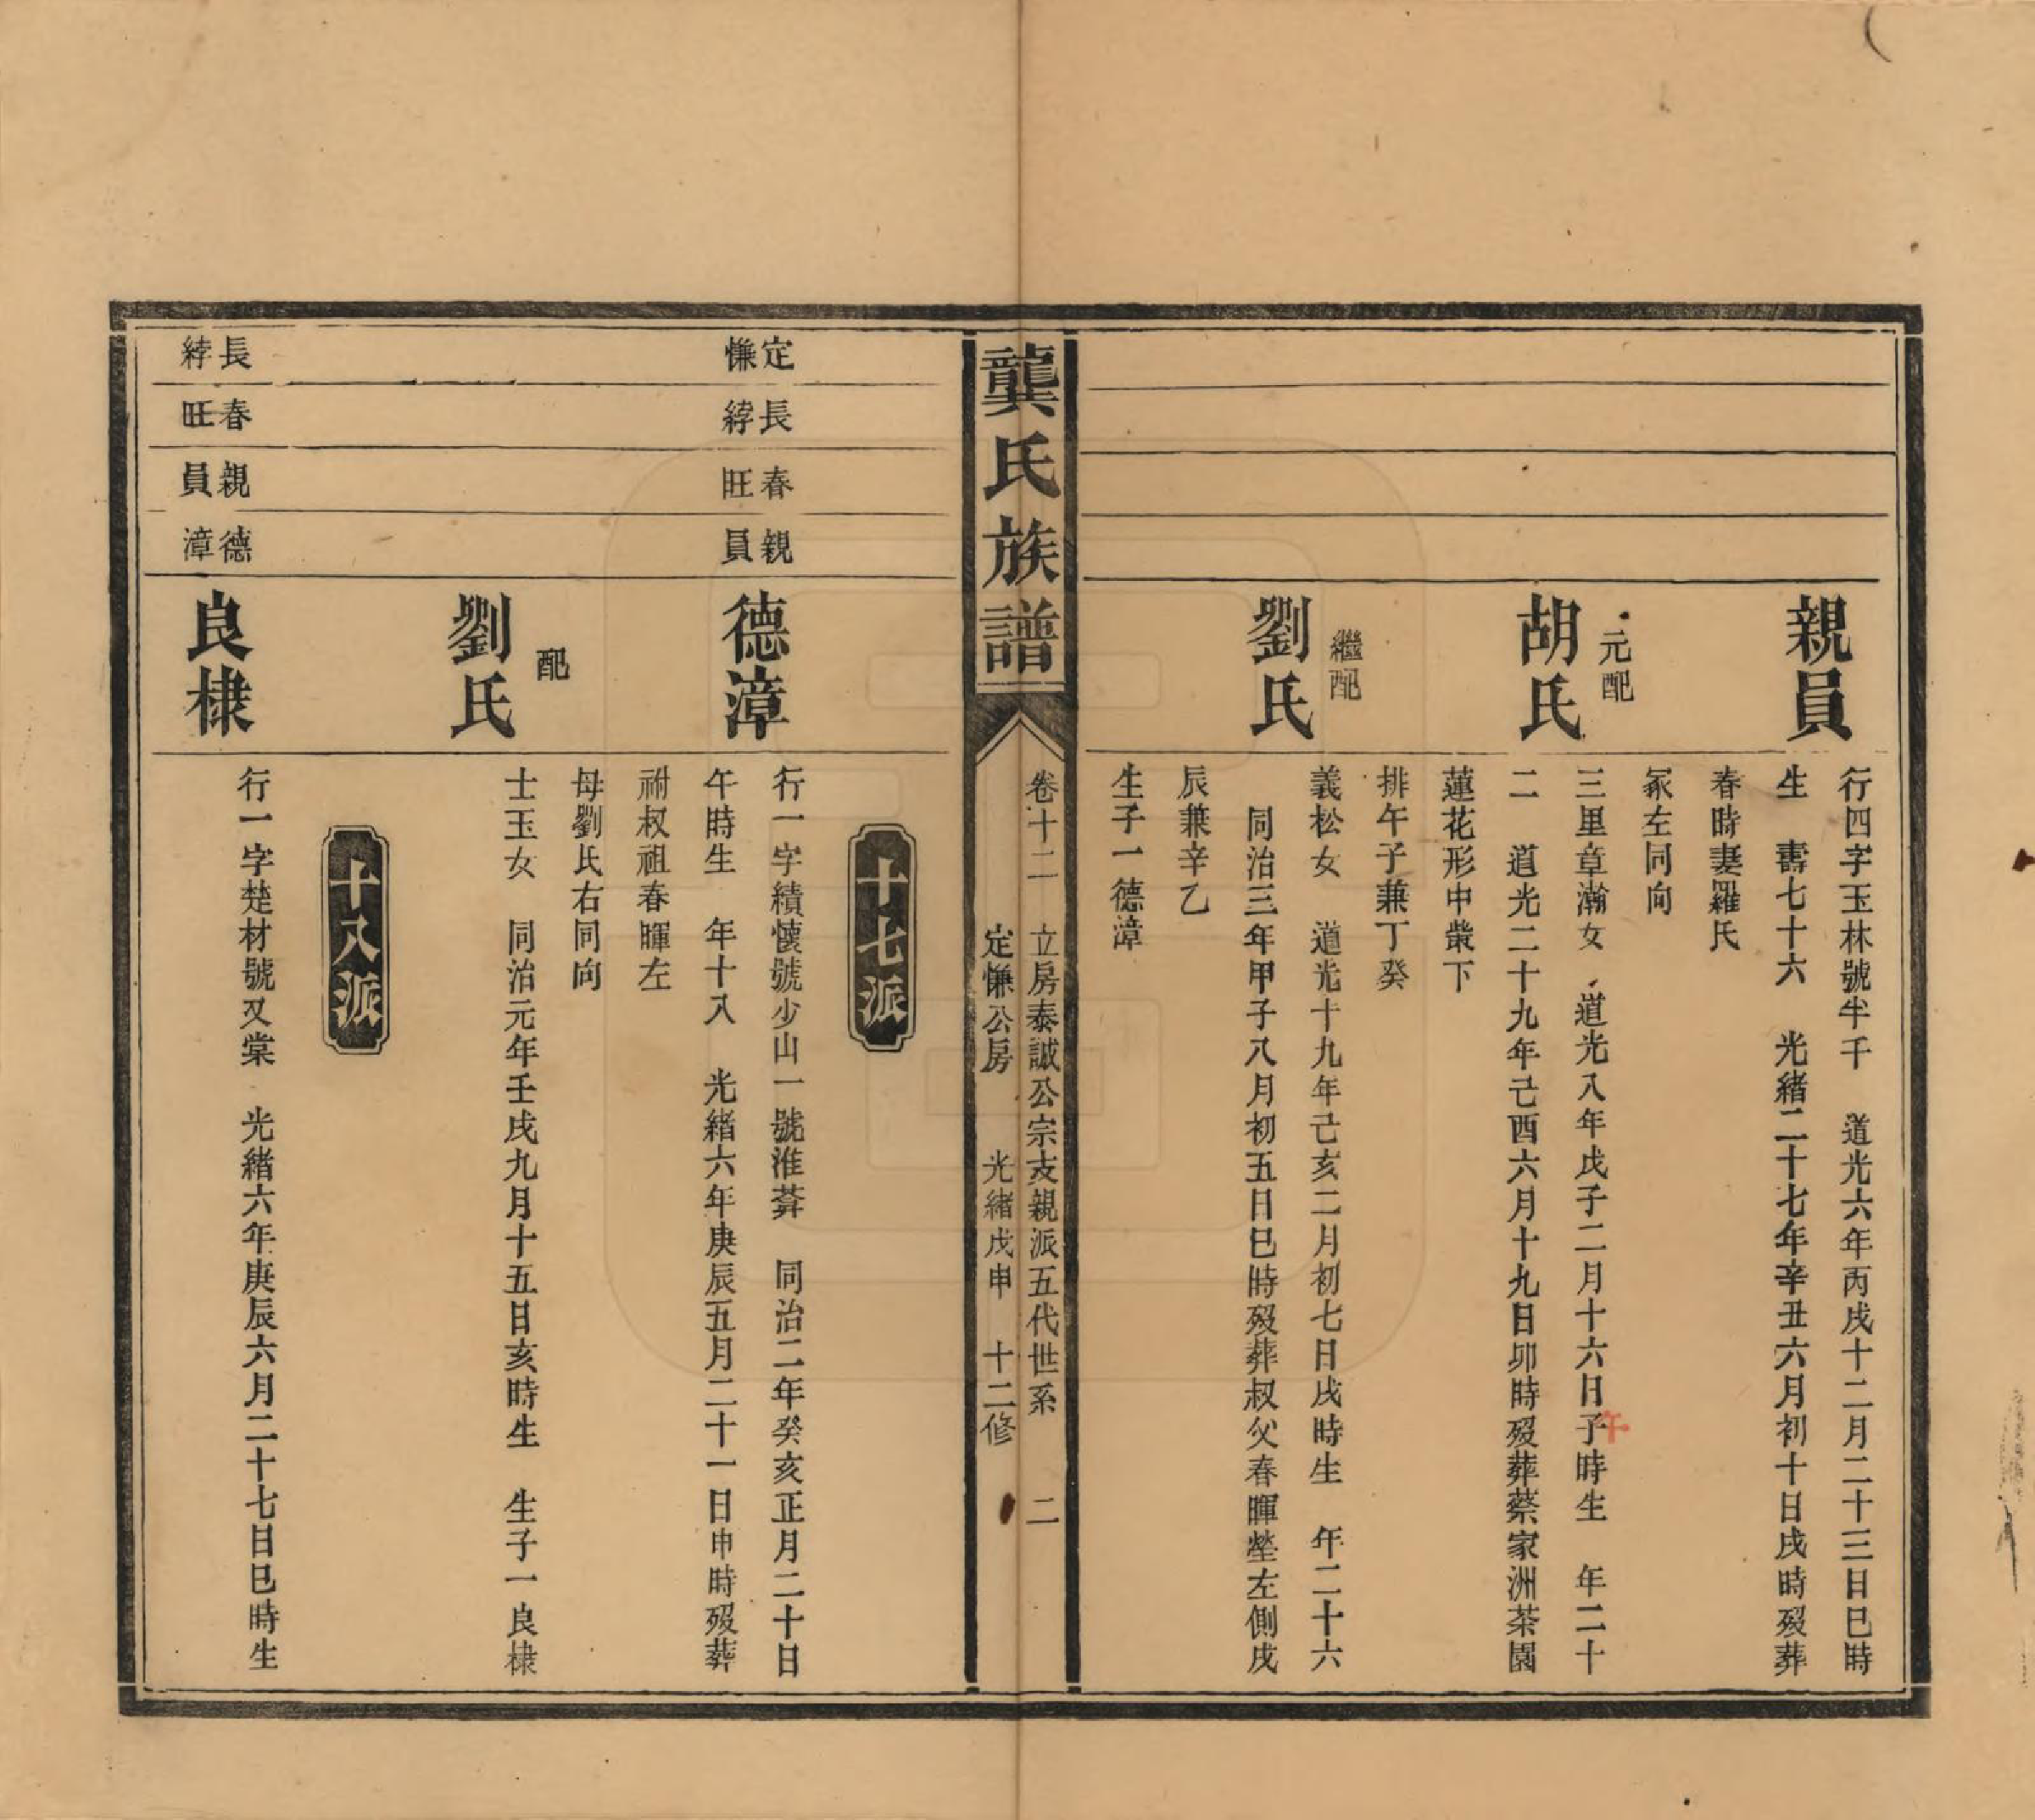 親員
行四字玉林號半千　道光六年丙戌十二月二十三日巳時
生　壽七十六　光緒二十七年辛丑六月初十日戌時歿葬
春時妻羅氏
冢左同向
元配
胡氏
三里章瀚女　道光八年戊子二月十六日子時生　年二十
午
二　道光二十九年己酉六月十九日卯時歿葬蔡家洲茶園
蓮花形中業下
排午子兼丁癸
繼配
劉氏
義松女　道光十九年己亥二月初七日戌時生　年二十六
同治三年甲子八月初五日巳時歿葬叔父春暉塋左側戌
辰兼辛乙
生子一德漳
龔氏族譜
卷十二　立房泰誠公宗支親派五代世系　二
定慊公房　光緒戊申　十二修
十七派
定慊
長綍
春旺
親員
德漳
行一字績懷號少山一號淮葊　同治二年癸亥正月二十日
午時生　年十八　光緒六年庚辰五月二十一日申時歿葬
祔叔祖春暉左
母劉氏右同向
配
劉氏
士玉女　同治元年壬戌九月十五日亥時生　生子一良棣
十八派
長綍
春旺
親員
德漳
良棣
行一字楚材號又棠　光緒六年庚辰六月二十七日巳時生